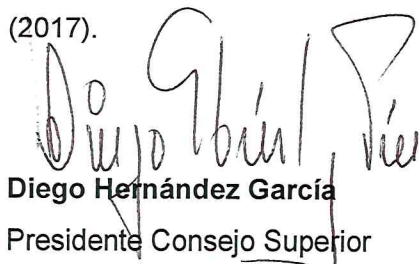 (2017).
Diego Hernández García
Presidente Consejo Superior